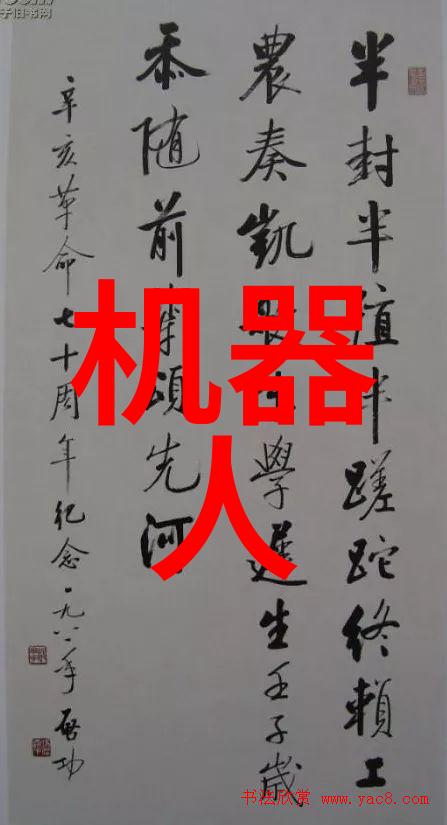 半封半殖半蹉跎終賴工
農奏凱歌學遲生壬子歲
忝随前輩頌先河
辛亥革命七十周年纪念一九八一年 启功
机器
人
子旧书网
书法欣赏 www.yac8.com